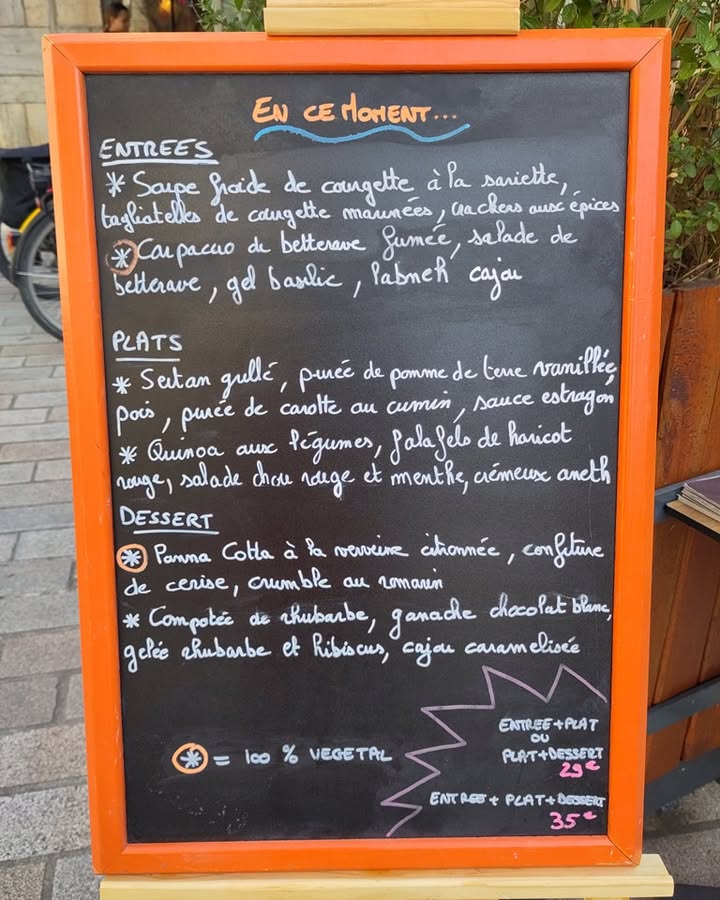 EN CE MOMENT...
ENTREES
* Soupe froide de courgette à la sariette,
tagliatelles de courgette marinées, crackers aux épices
* Carpaccio de betterave fumée, salade de
betterave, gel basilic, labneh cajou
PLATS
* Seitan grillé, purée de pomme de terre vanillée,
pois, purée de carotte au cumin, sauce estragon
* Quinoa aux légumes, falafels de haricot
rouge, salade chou rouge et menthe, crémeux aneth
DESSERT
* Panna Cotta à la verveine citronnée, confiture
de cerise, crumble au romarin
* Compotée de rhubarbe, ganache chocolat blanc,
gelée rhubarbe et hibiscus, cajou caramelisée
* = 100 % VEGETAL
ENTREE+PLAT
OU
PLAT+DESSERT
29€
ENTREE + PLAT+DESSERT
35€